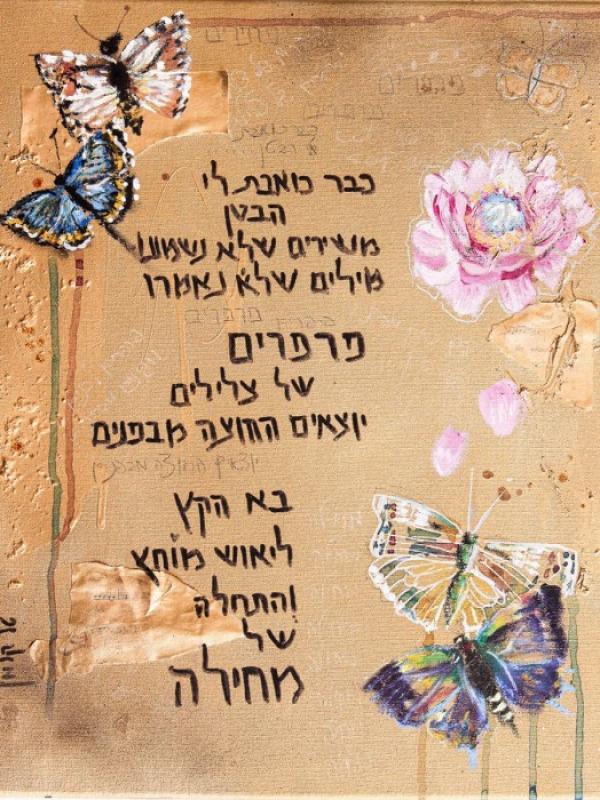 כבר כואבת לי
הבטן
משירים שלא נשמעו
מילים שלא נאמרו
פרפרים
של צלילים
יוצאים החוצה מבפנים
יוצאים החוצה מבפנים
בא הקץ
ליאוש מוחץ
והתחלה
של
מחילה